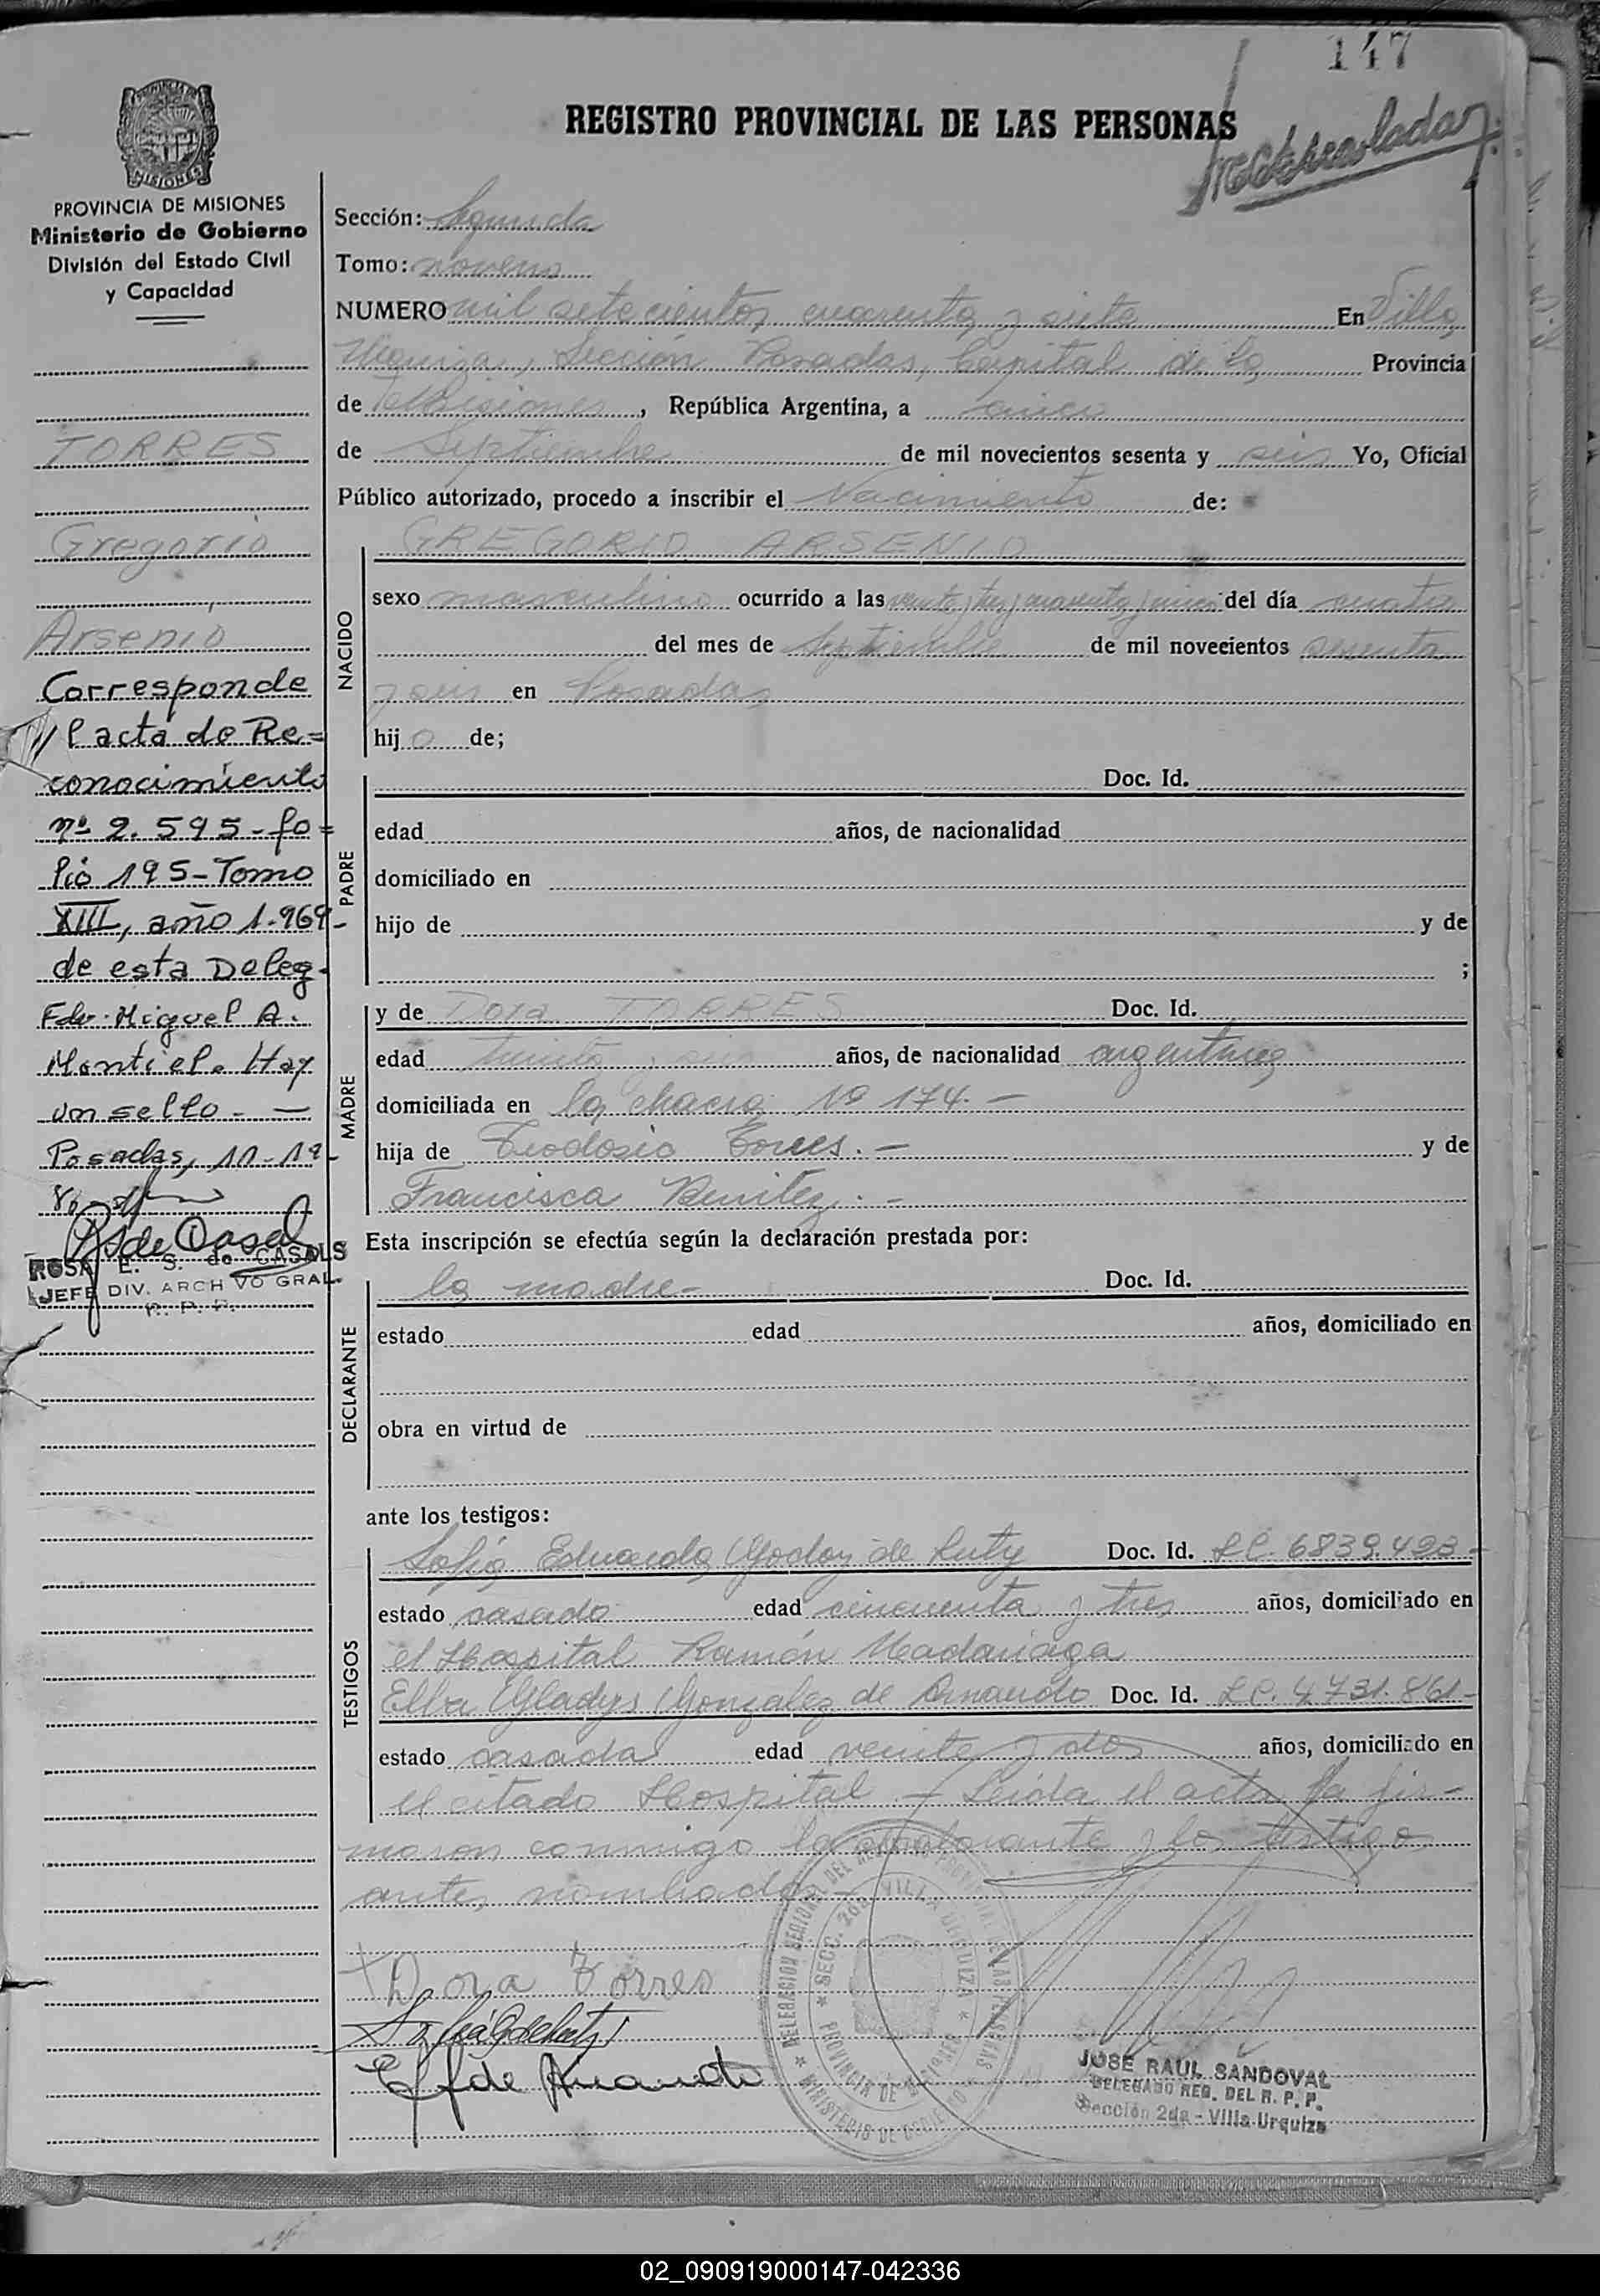 147
REGISTRO PROVINCIAL DE LAS PERSONAS
MISIONES
PROVINCIA DE MISIONES
Ministerio de Gobierno
División del Estado Civil
y Capacidad
TORRES
Gregorio
Arsenio
Corresponde
l acta de Re=
conocimiento
nº 2.595-fo=
lio 195-Tomo
XIII, año 1.969-
de esta Deleg.
Fdo. Miguel A.
Montiel. Hay
un sello. —
Posadas, 11-12-
80
R S de Casals
ROSA E. S. de CASALS
JEFE DIV. ARCHIVO GRAL.
R. P. P.
Sección: Segunda
Tomo: noveno
NUMERO mil setecientos cuarenta y siete En Villa
Urquiza, Sección Posadas, Capital de la Provincia
de Misiones, República Argentina, a cinco
de Septiembre de mil novecientos sesenta y seis Yo, Oficial
Público autorizado, procedo a inscribir el Nacimiento de:
NACIDO
GREGORIO ARSENIO
sexo masculino ocurrido a las veinte y tres y cuarenta y cinco del día cuatro
del mes de Septiembre de mil novecientos sesenta
y seis en Posadas
hijo de;
PADRE
Doc. Id.
edad años, de nacionalidad
domiciliado en
hijo de y de
;
MADRE
y de Dora TORRES Doc. Id.
edad treinta y seis años, de nacionalidad argentina
domiciliada en la chacra Nº 174. —
hija de Teodosio Torres. — y de
Francisca Benitez. —
Esta inscripción se efectúa según la declaración prestada por:
DECLARANTE
la madre- Doc. Id.
estado edad años, domiciliado en
obra en virtud de
ante los testigos:
TESTIGOS
Sofía Eduarda Godoy de Luty Doc. Id. LC. 6839.493-
estado casado edad cincuenta y tres años, domiciliado en
el Hospital Ramón Madariaga
Elba Gladys Gonzalez de Amarido Doc. Id. LC. 4.731.861-
estado casada edad veinte y dos años, domiciliado en
el citado Hospital — Leída el acta la fir-
maron conmigo la declarante y los testigos
antes nombrados
DELEGACION REGIONAL DEL REGISTRO PROVINCIAL DE LAS PERSONAS
MINISTERIO DE GOBIERNO
SECC. 2da VILLA URQUIZA
PROVINCIA DE MISIONES
Dora Torres
JOSE RAUL SANDOVAL
DELEGADO REG. DEL R. P. P.
Sección 2da - Villa Urquiza
02_090919000147-042336